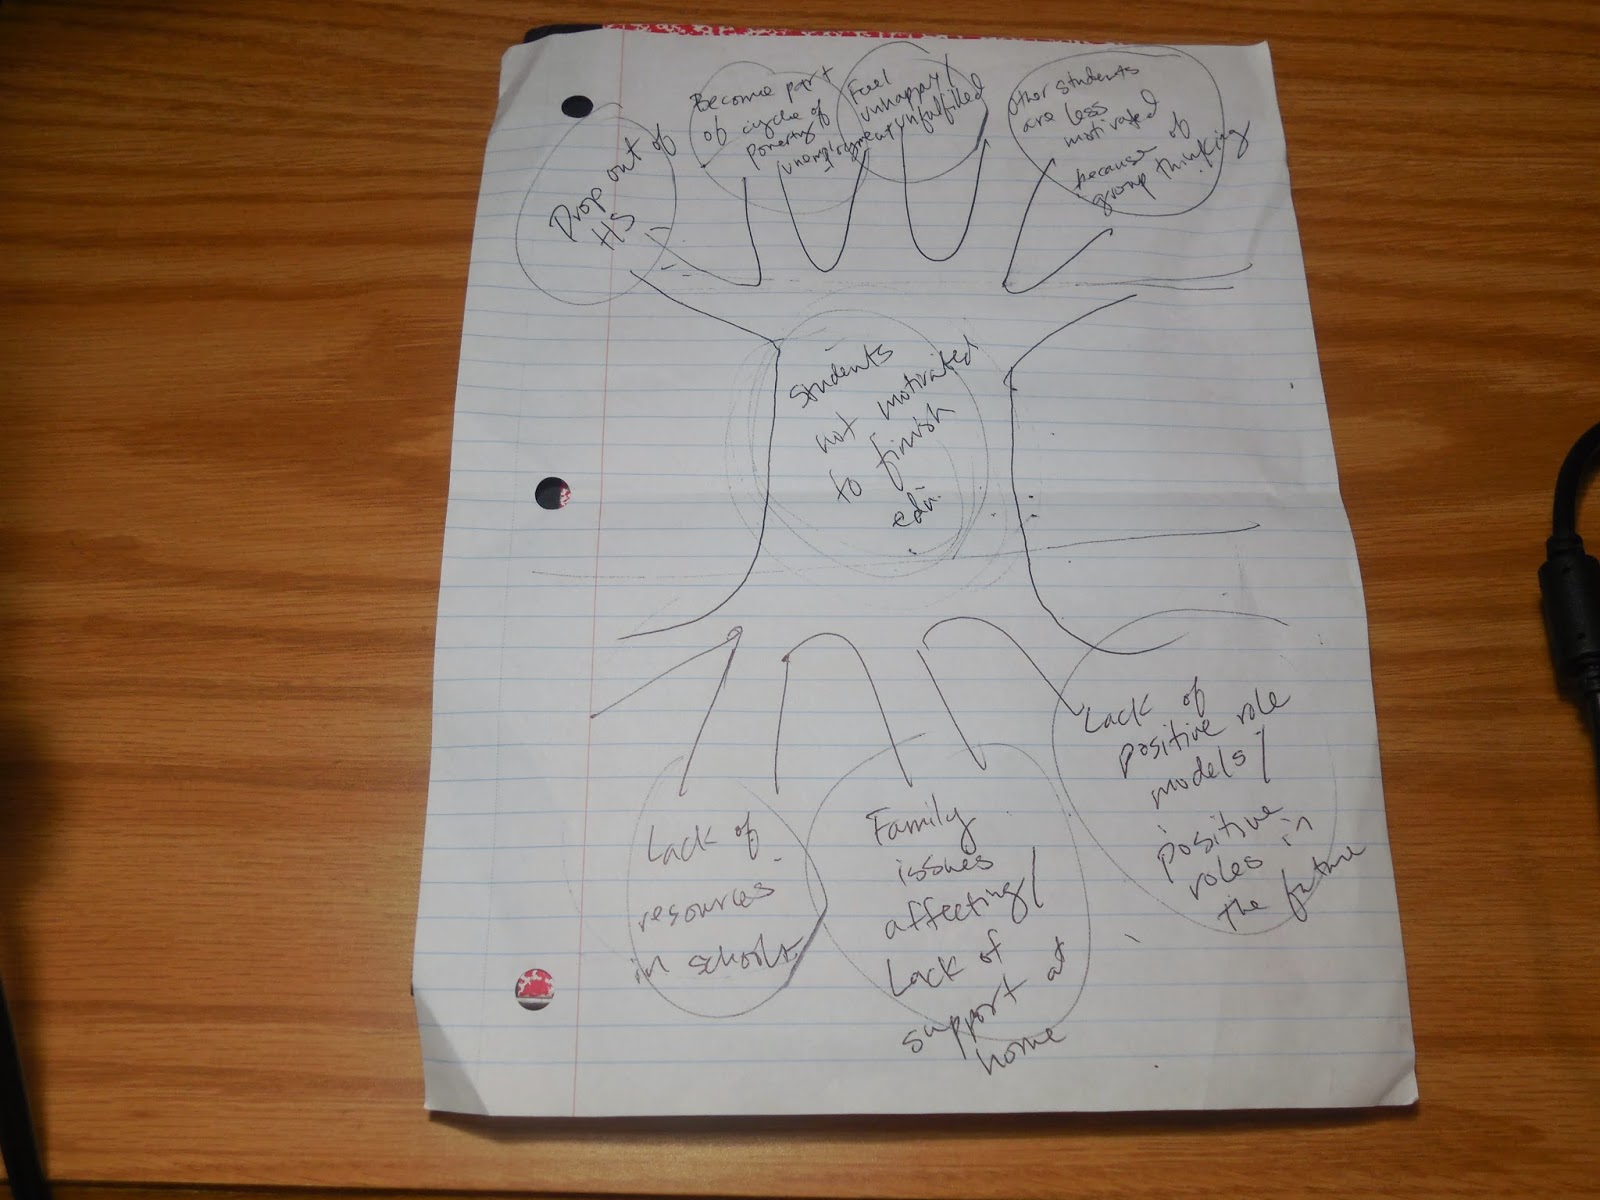 Drop out of
HS
Become part
of cycle of
poverty of
unemployment
Feel
unhappy/
unfulfilled
Other students
are less
motivated
because of
group thinking
Students
not motivated
to finish
edu.
Lack of
resources
in schools
Family
issues
affecting/
Lack of
support at
home
Lack of
positive role
models/
positive
roles in
the future